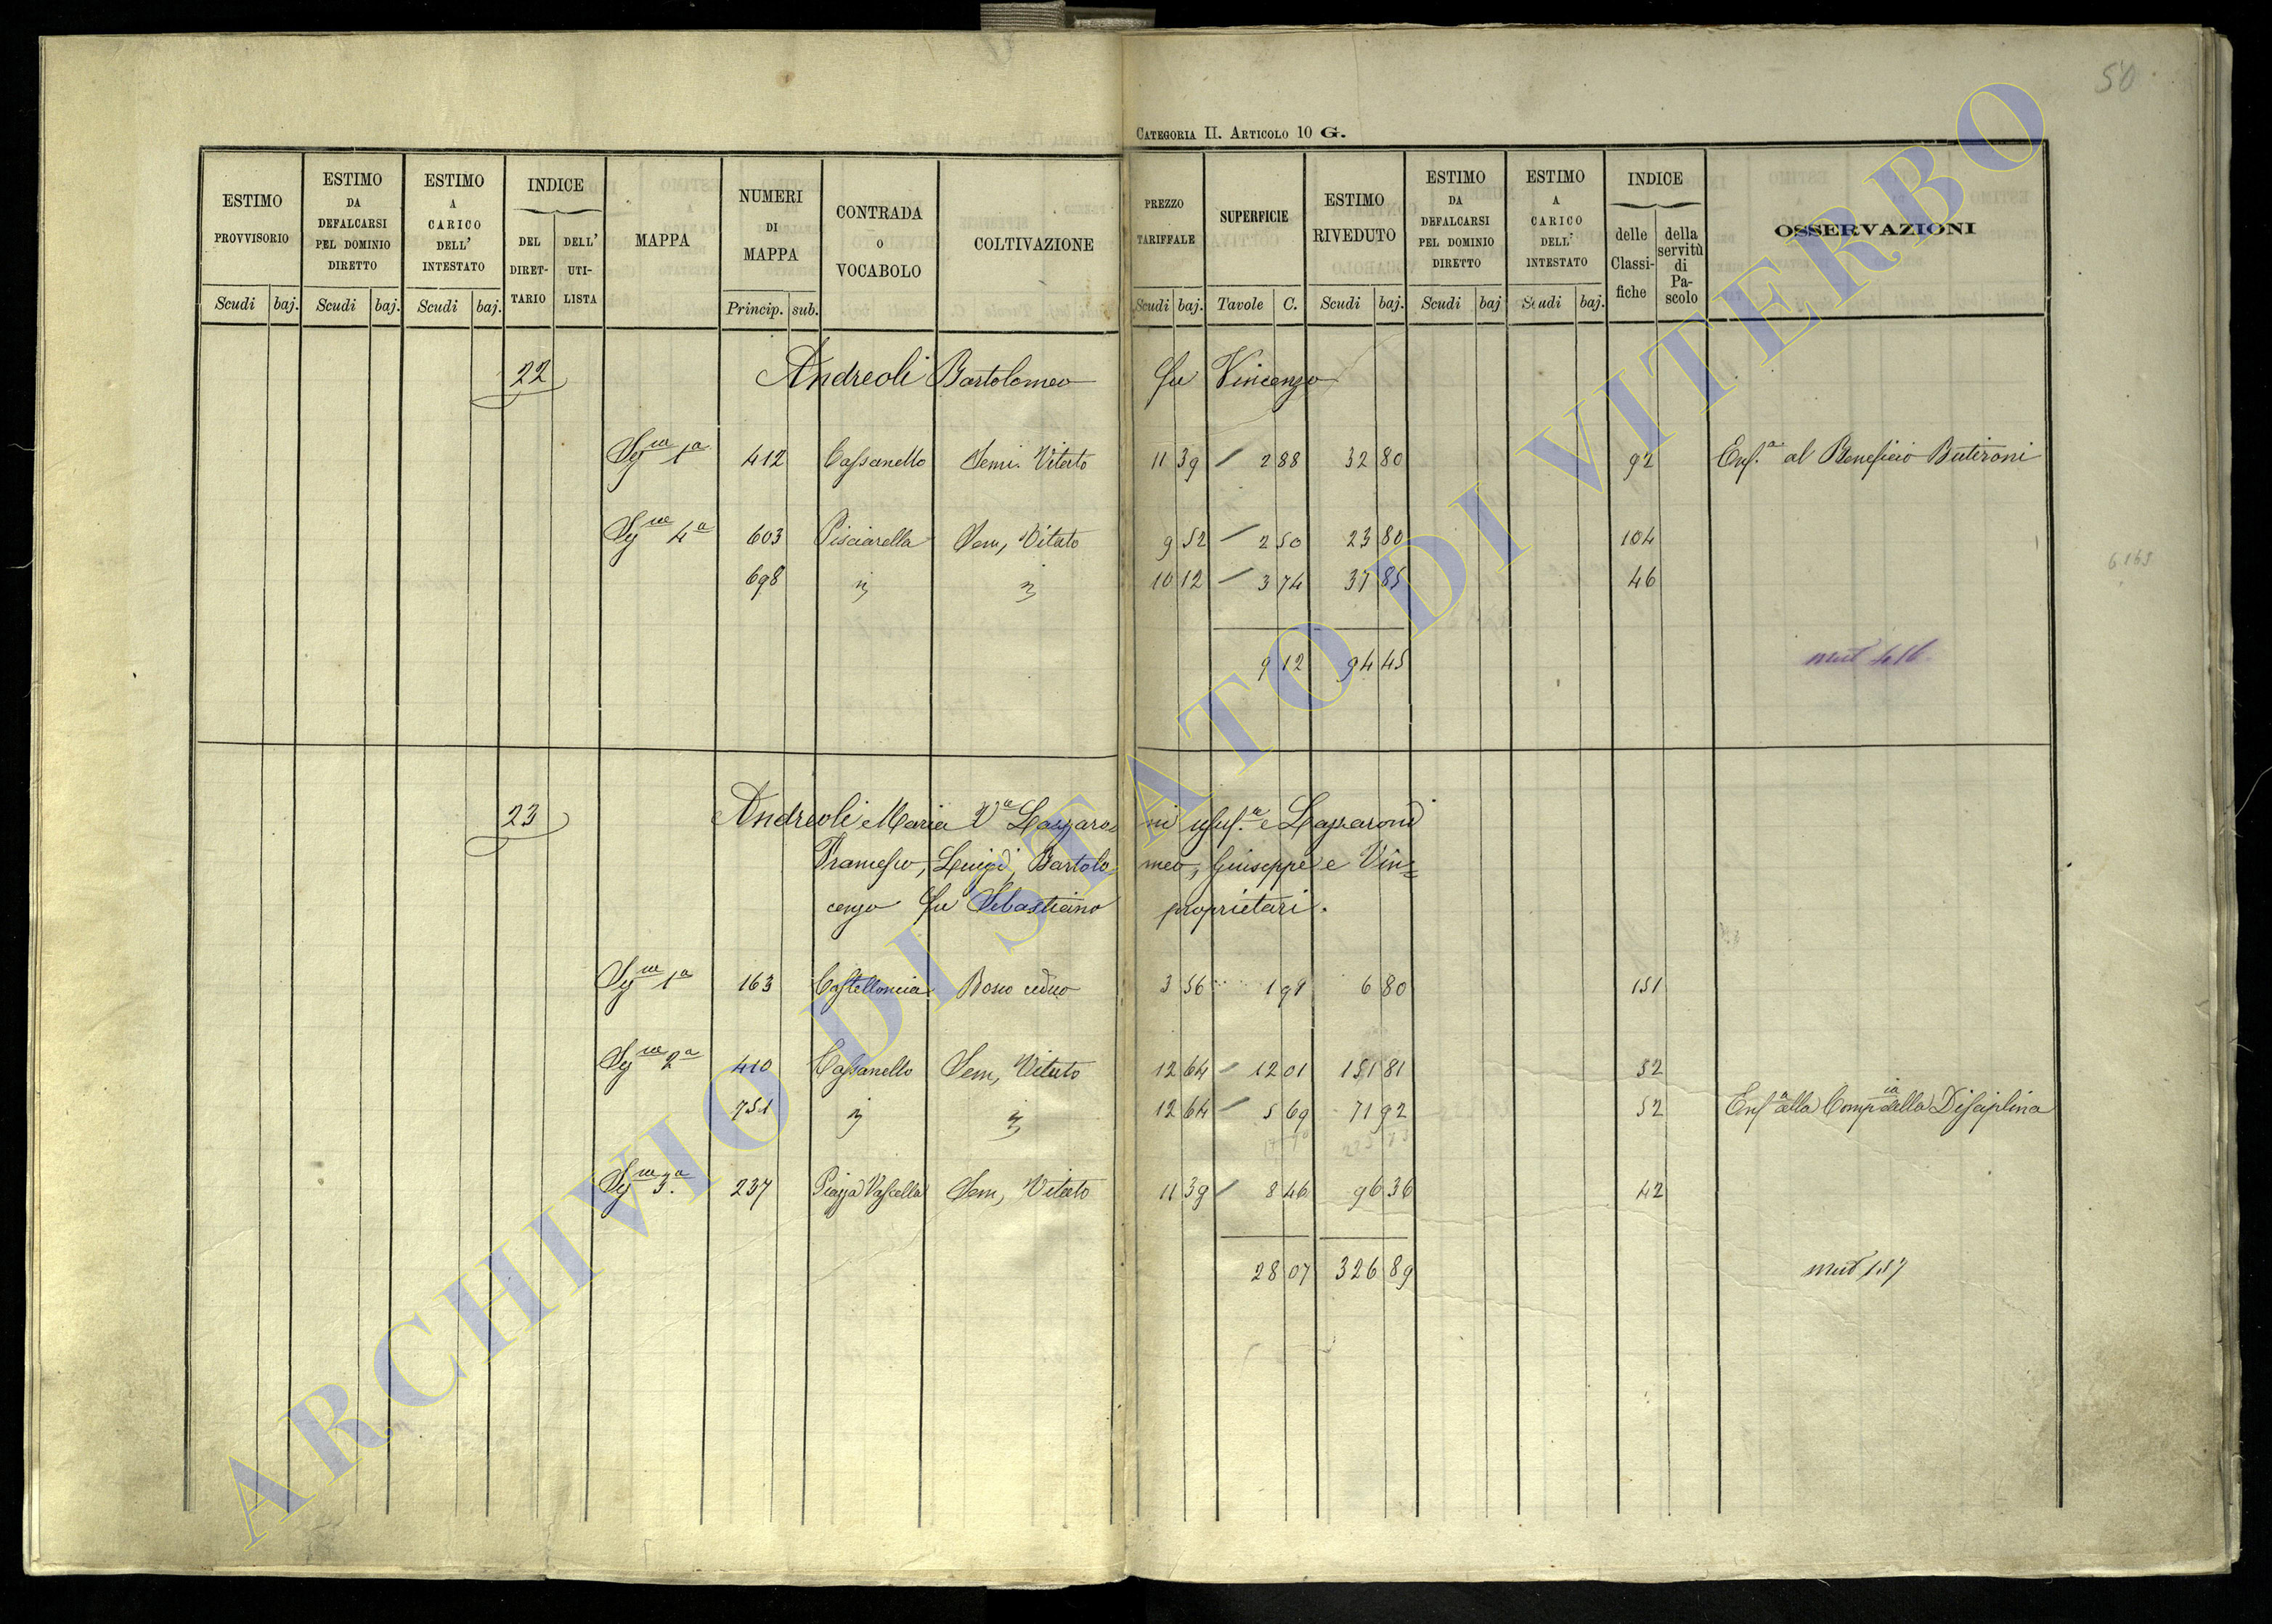 50
CATEGORIA II. ARTICOLO 10 G.
ESTIMO PROVVISORIO Scudi baj.
ESTIMO DA DEFALCARSI PEL DOMINIO DIRETTO Scudi baj.
ESTIMO A CARICO DELL' INTESTATO Scudi baj.
INDICE DEL DIRET-TARIO DELL' UTI-LISTA
MAPPA
NUMERI DI MAPPA Princip. sub.
CONTRADA O VOCABOLO
COLTIVAZIONE
PREZZO TARIFFALE Scudi baj.
SUPERFICIE Tavole C.
ESTIMO RIVEDUTO Scudi baj.
ESTIMO DA DEFALCARSI PEL DOMINIO DIRETTO Scudi baj
ESTIMO A CARICO DELL' INTESTATO Scudi baj.
INDICE delle Classi-fiche della servitù di Pa-scolo
OSSERVAZIONI
22 Andreoli Bartolomeo fu Vincenzo
Sez.ne 1a 412 Cassanello Semi. Vitato 11 39 2 88 32 80 92 Enf.a al Beneficio Butironi
Sez.ne 4a 603 Pisciarella Sem, Vitato 9 52 2 50 23 80 104
698 " " 10 12 3 74 37 85 46
6.163
9 12 94 45 mut 416
23 Andreoli Maria Va Lazzaro= ni usuf.a e Lazzaroni
Francesco, Luigi, Bartolo= meo, Giuseppe e Vin=
cenzo fu Sebastiano proprietari.
Sez.ne 1a 163 Castelloncia Bosco ceduo 3 56 1 91 6 80 151
Sez.ne 2a 410 Cassanello Sem, Vitato 12 64 12 01 151 81 52
751 " " 12 64 5 69 71 92 52 Enf.a alla Comp.ia della Disciplina
Sez.ne 3a. 237 Piazza Vascella Sem, Vitato 11 39 8 46 96 36 42
28 07 326 89 mut 157
ARCHIVIO DI STATO DI VITERBO